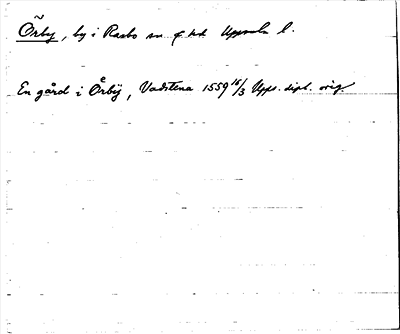 Örby, by i Rasbo sn o. hd Uppsala l.
En gård i Örbÿ, Vadstena 1559 15/3 Upps. dipl. orig